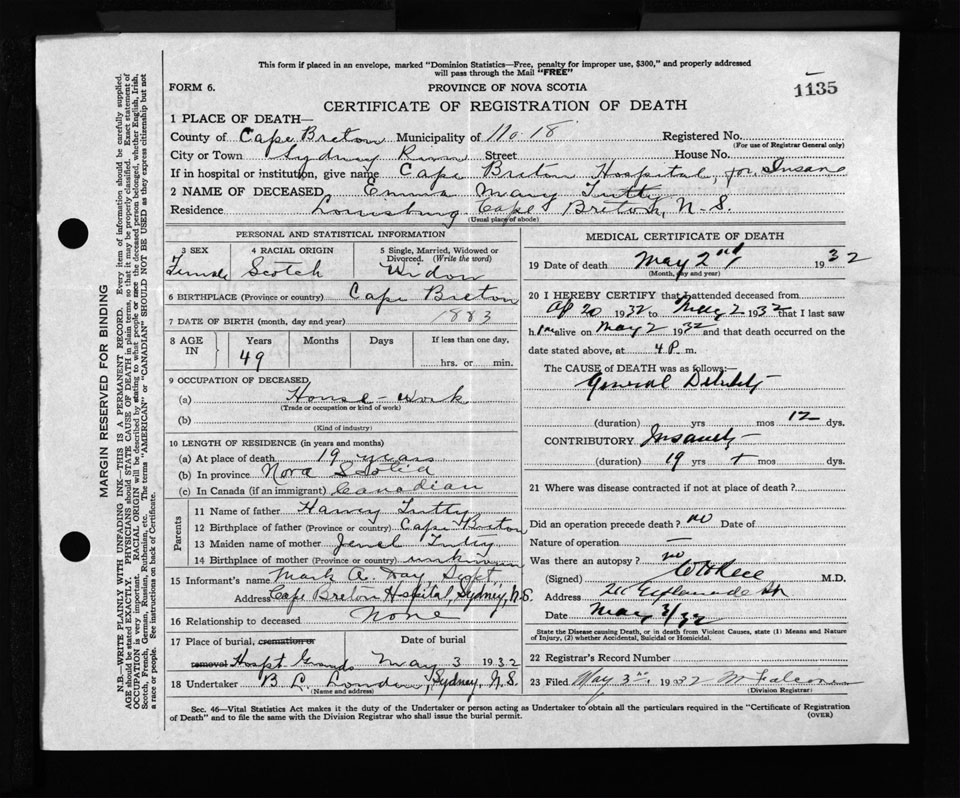 This form if placed in an envelope, marked "Dominion Statistics—Free, penalty for improper use, $300," and properly addressed
will pass through the Mail "FREE"
FORM 6.
PROVINCE OF NOVA SCOTIA
1135
CERTIFICATE OF REGISTRATION OF DEATH
1 PLACE OF DEATH—
County of Cape Breton Municipality of No. 18 Registered No.
(For use of Registrar General only)
City or Town Sydney River Street House No.
If in hospital or institution, give name Cape Breton Hospital, for Insane
2 NAME OF DECEASED Emma Mary Tutty
Residence Louisburg, Cape Breton, N.S.
(Usual place of abode)
PERSONAL AND STATISTICAL INFORMATION
3 SEX 4 RACIAL ORIGIN 5 Single, Married, Widowed or
Divorced. (Write the word)
Female Scotch Widow
6 BIRTHPLACE (Province or country) Cape Breton
7 DATE OF BIRTH (month, day and year) 1883
8 AGE IN Years Months Days If less than one day,
49 hrs. or min.
9 OCCUPATION OF DECEASED
(a) House-work
(Trade or occupation or kind of work)
(b)
(Kind of industry)
10 LENGTH OF RESIDENCE (in years and months)
(a) At place of death 19 years
(b) In province Nova Scotia
(c) In Canada (if an immigrant) Canadian
Parents
11 Name of father Harvey Tutty
12 Birthplace of father (Province or country) Cape Breton
13 Maiden name of mother Tutty
14 Birthplace of mother (Province or country) unknown
15 Informant's name Mark A. Day, Supt.,
Address Cape Breton Hospital, Sydney, N.S.
16 Relationship to deceased None
17 Place of burial, cremation or Date of burial
removal Hospt. Grounds May 3 1932
18 Undertaker B. L. Sydney, N.S.
(Name and address)
MEDICAL CERTIFICATE OF DEATH
19 Date of death May 2nd, 1932
(Month, day and year)
20 I HEREBY CERTIFY that I attended deceased from
Ap 20 1932 to May 2 1932 that I last saw
her alive on May 2 1932 and that death occurred on the
date stated above, at 4 P. m.
The CAUSE of DEATH was as follows:—
General Debility
(duration) yrs mos 12 dys.
CONTRIBUTORY Insanity
(duration) 19 yrs + mos dys.
21 Where was disease contracted if not at place of death?
Did an operation precede death? no Date of
Nature of operation —
Was there an autopsy? no
(Signed) M.D.
Address Esplanade
Date May 3/32
State the Disease causing Death, or in death from Violent Causes, state (1) Means and Nature
of Injury, (2) whether Accidental, Suicidal or Homicidal.
22 Registrar's Record Number
23 Filed May 3rd 1932
(Division Registrar)
Sec. 46—Vital Statistics Act makes it the duty of the Undertaker or person acting as Undertaker to obtain all the particulars required in the "Certificate of Registration
of Death" and to file the same with the Division Registrar who shall issue the burial permit.
(OVER)
MARGIN RESERVED FOR BINDING
N.B.—WRITE PLAINLY WITH UNFADING INK—THIS IS A PERMANENT RECORD. Every item of information should be carefully supplied.
AGE should be stated EXACTLY. PHYSICIANS should STATE CAUSE OF DEATH in plain terms, so that it may be properly classified. Exact statement of
OCCUPATION is very important. RACIAL ORIGIN will be described by stating to what people or race the deceased person belonged, whether English, Irish,
Scotch, French, German, Russian, Ruthenian, etc. The terms "AMERICAN" or "CANADIAN" SHOULD NOT BE USED as they express citizenship but not
a race or people. See instructions on back of Certificate.